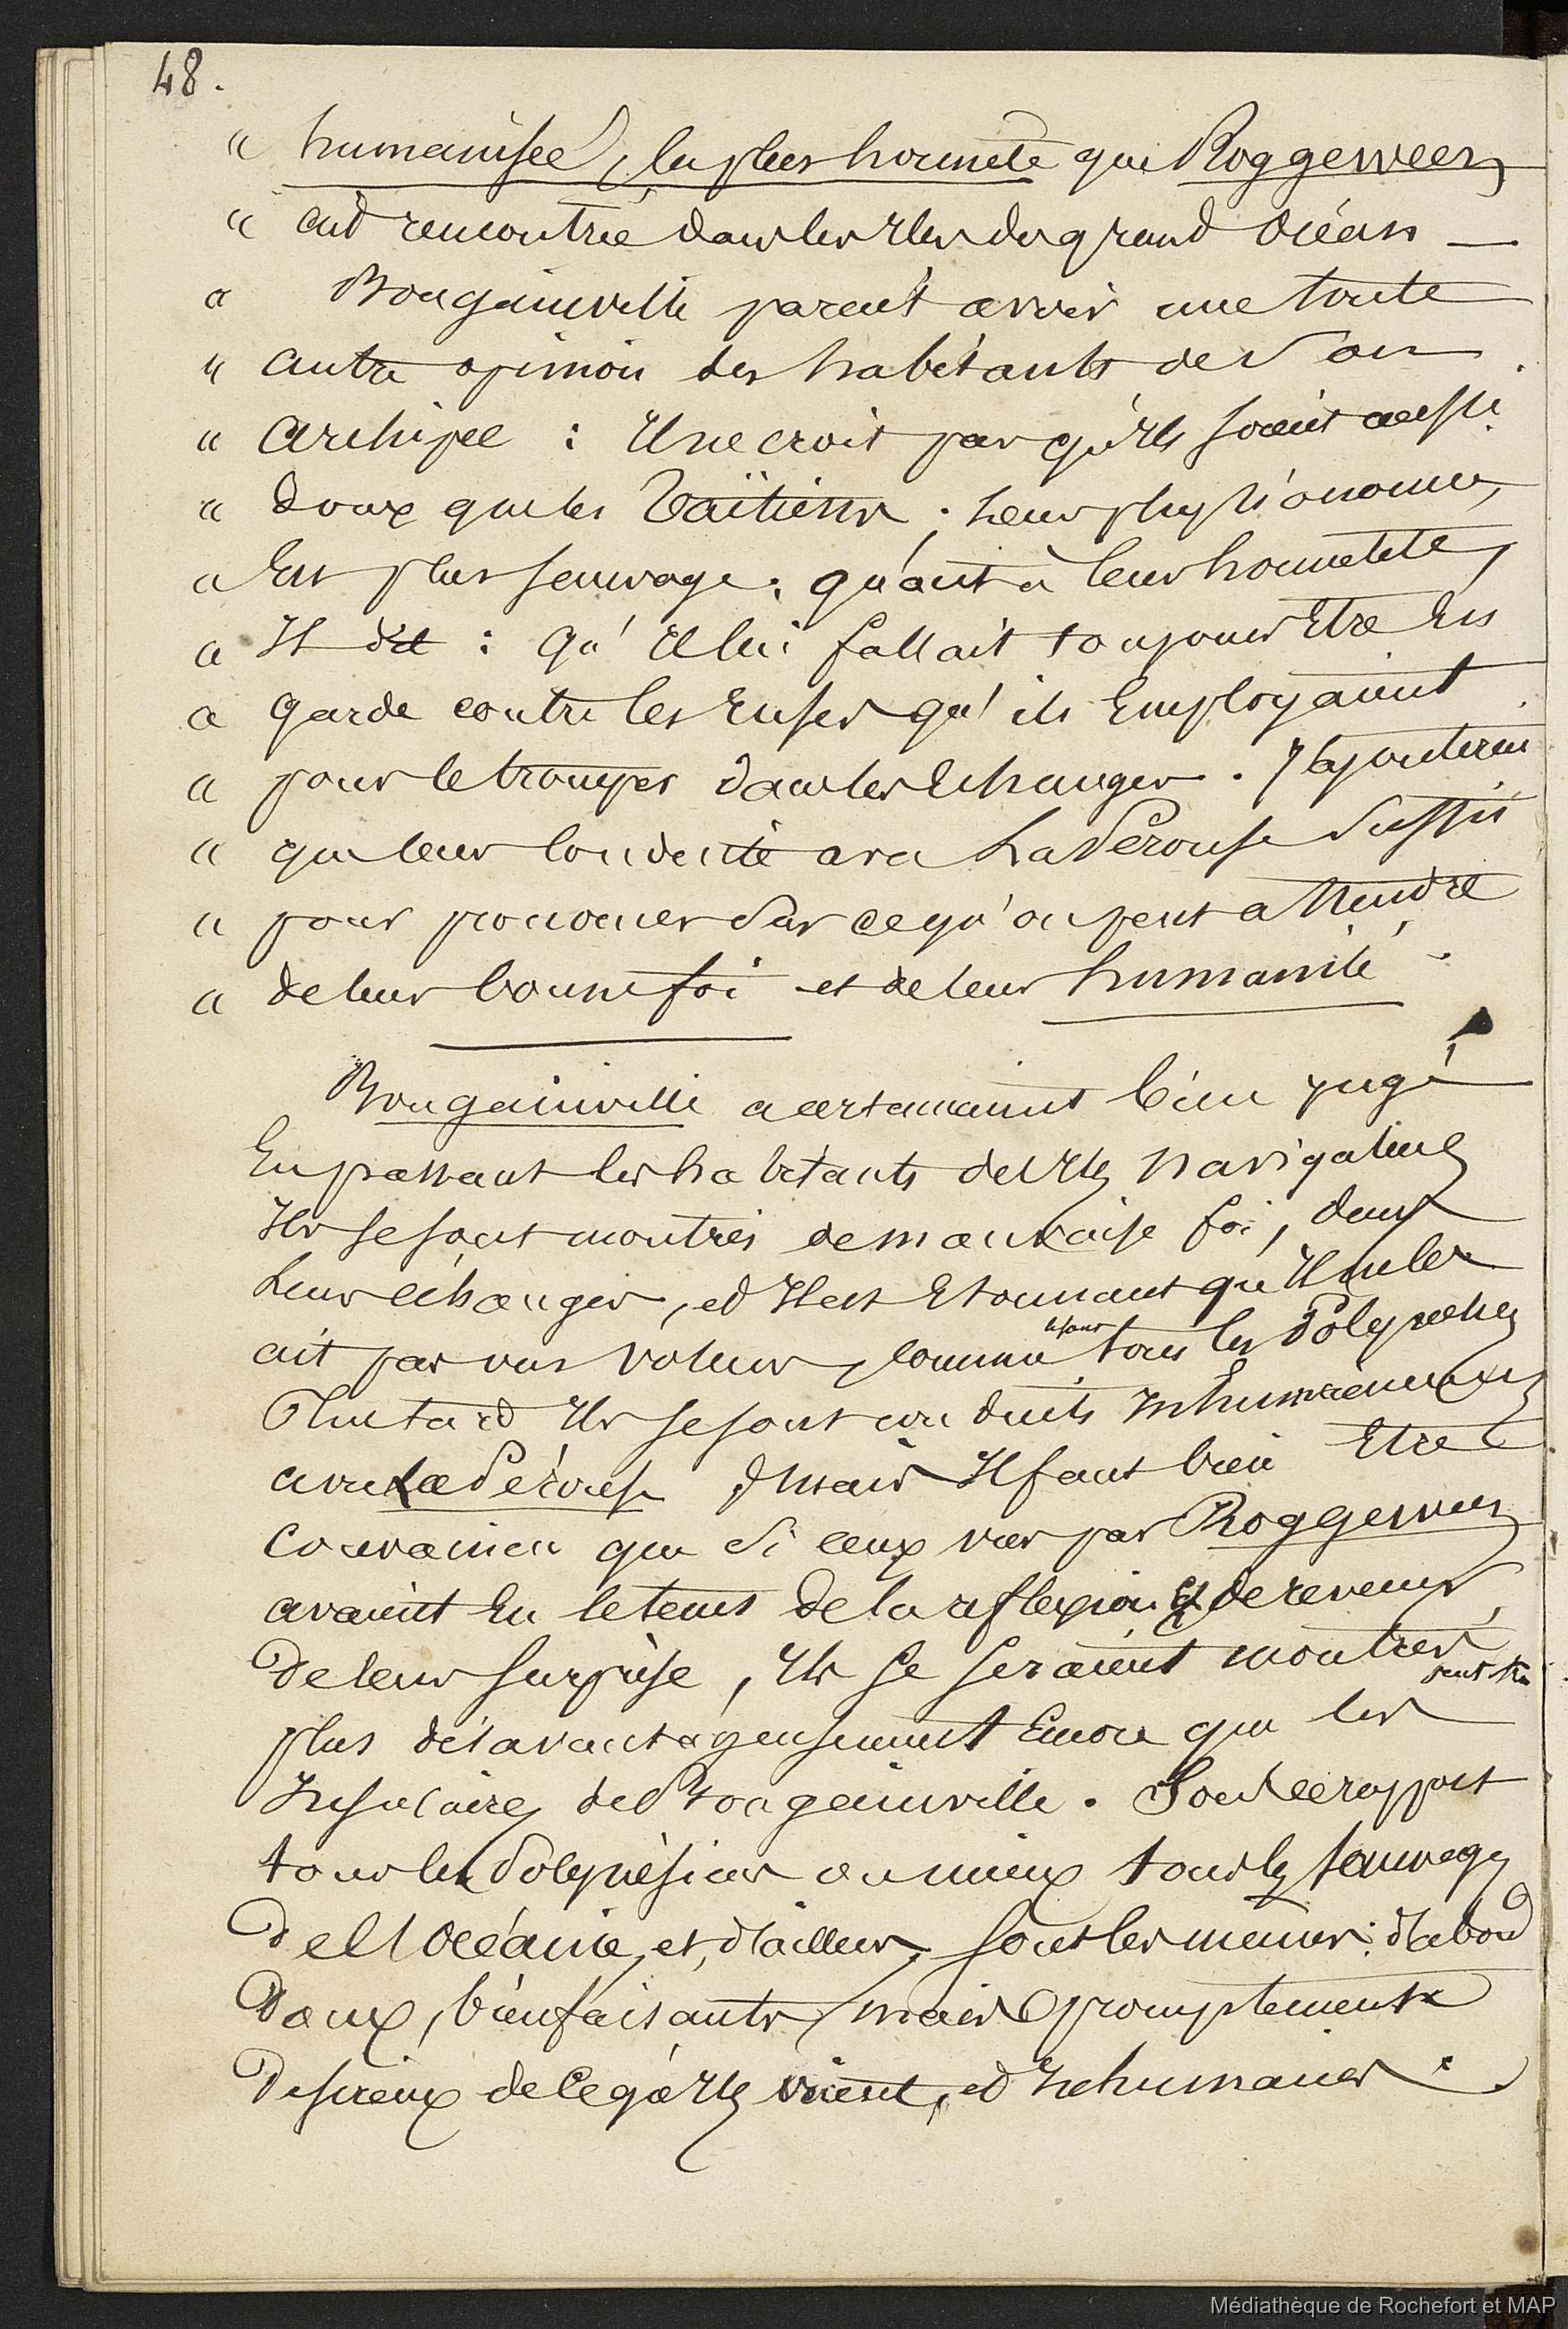 48.
" humanisée, la plus honnete que Roggeween
" eut rencontrée dans les Iles du grand Océan —
" Bougainville parait avoir une toute
" autre opinion des habitants de Son
" Archipel : Il ne croit pas qu'ils soient aussi
" Doux que les Taïtiens ; leur physionomie,
" Est plus sauvage ; quant à leur honnêteté,
" Il dit : qu'Il lui fallait toujours Etre En
" garde contre les ruses qu'ils Employaient
" pour le tromper dans les Echanges. J'ajouterai
" que leur conduite avec La Pérouse Suffit
" pour prononcer Sur ce qu'on peut attendre
" de leur bonne foi et de leur humanité.
Bougainville a certainement bien jugé
En passant les habitants des Iles navigateurs
Ils se sont montrés de mauvaise foi, dans
Leurs échanges, et Il est Etonnant qu'Il ne les
ait pas vus voleurs, comme le sont tous les Polynésiens
Plus tard Ils se sont conduits Inhumainement
avec La Pérouse ; mais Il faut bien Etre
Convaincu que si ceux vus par Roggeween
avaient Eu le tems de la reflexion Et de revenir
De leur surprise, Ils se seraient montrés peut être
plus désavantageusement Encore que les
Insulaires de Bougainville. Sous ce rapport
tous les Polynésiens ou mieux tous les sauvages
De l'Océanie, et d'ailleurs, sont les mêmes : d'abord
Doux, bienfaisants, mais promptement
Desireux de ce qu'Ils voient, et Inhumains.
Médiathèque de Rochefort et MAP